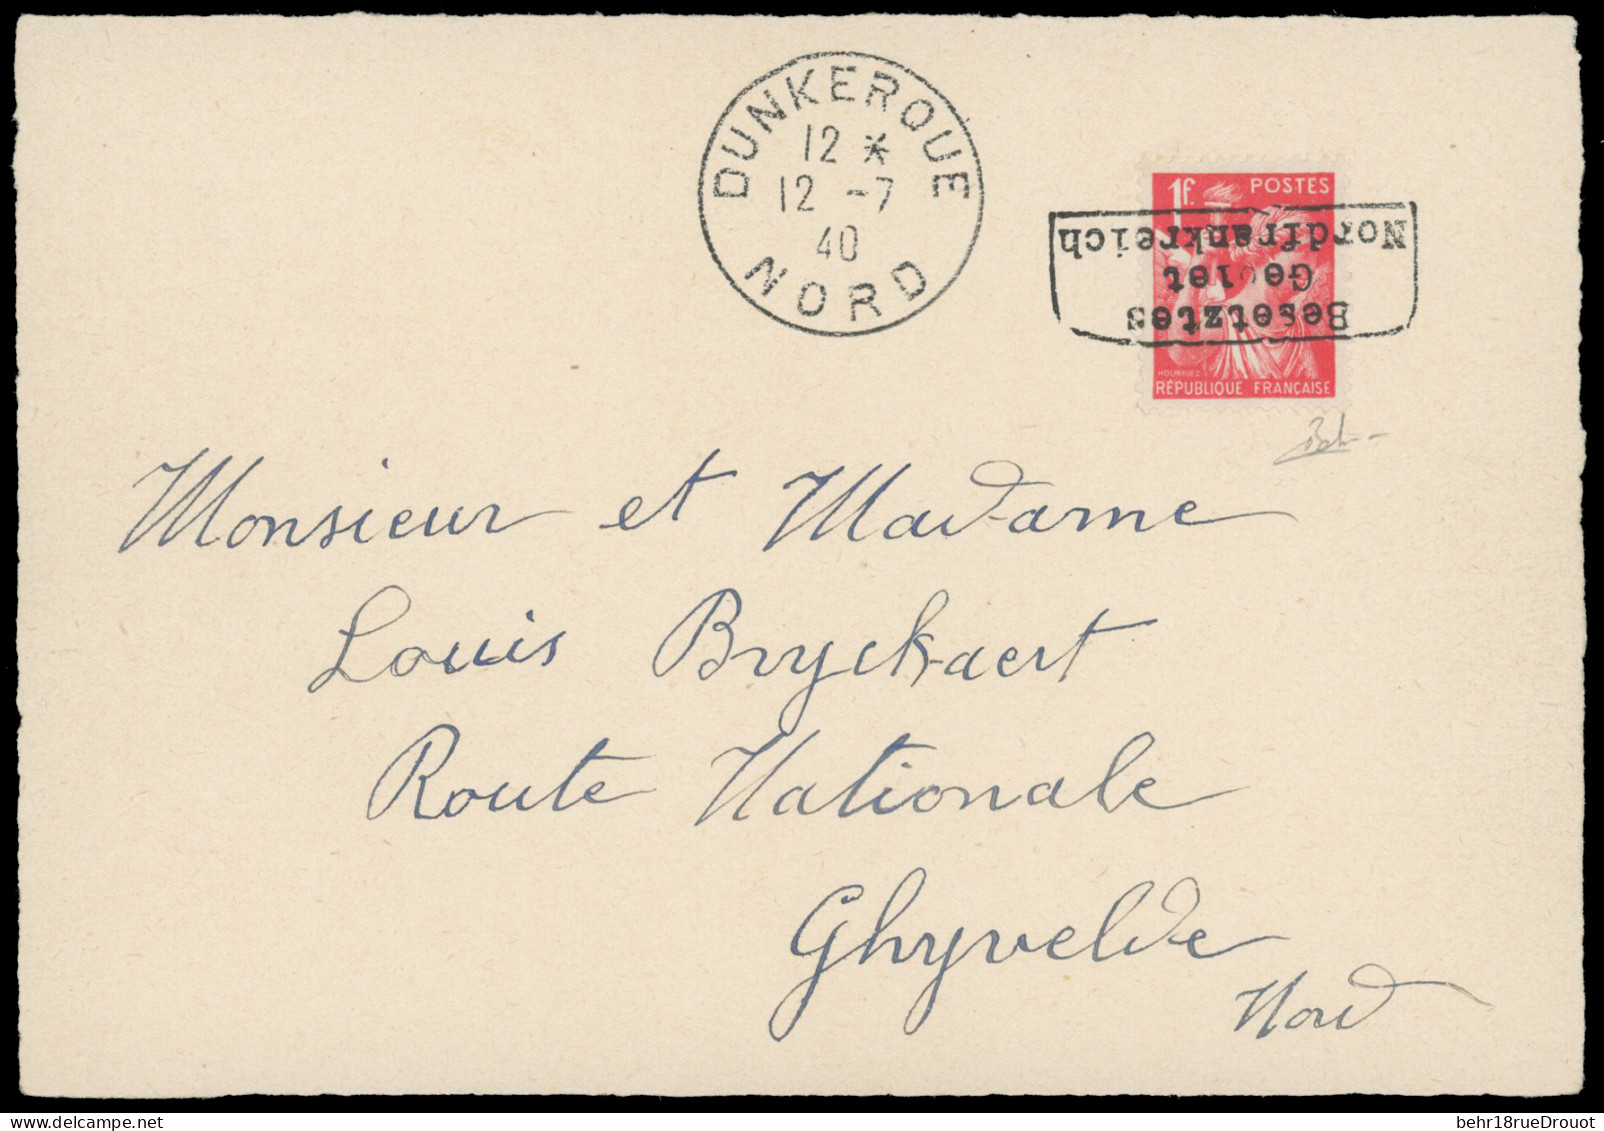 DUNKERQUE
12 *
12 -7
40
NORD
1f. POSTES
Besetztes
Gebiet
Nordfrankreich
HOURRIEZ
RÉPUBLIQUE FRANÇAISE
Behr
Monsieur et Madame
Louis Bryckaert
Route Nationale
Ghyvelde
Nord
behr18rueDrouot